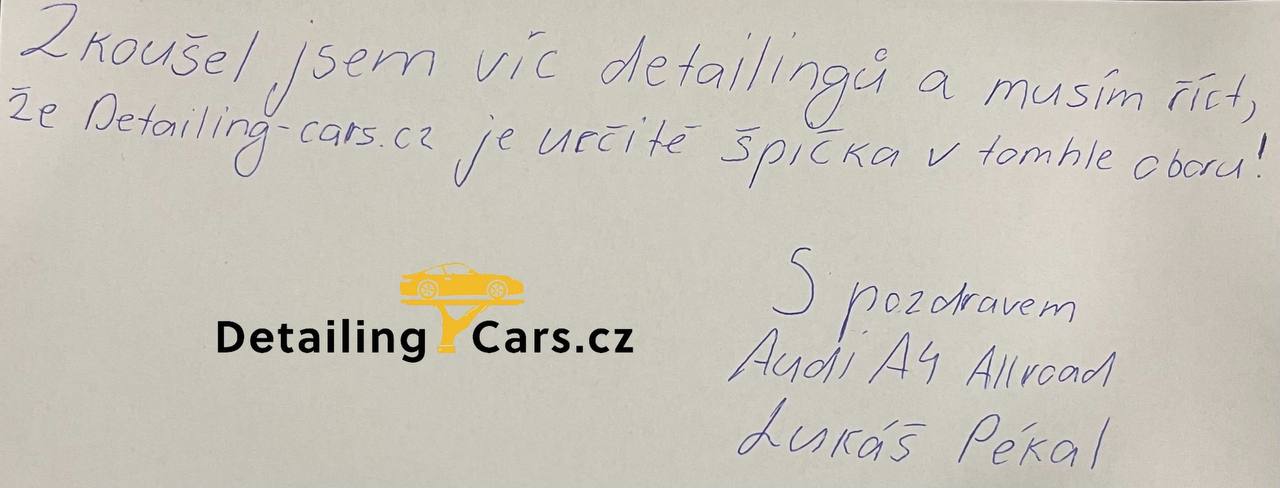 Zkoušel jsem víc detailingů a musím říct,
že Detailing-cars.cz je určitě špička v tomhle oboru!
Detailing Cars.cz
S pozdravem
Audi A4 Allroad
Lukáš Pékal